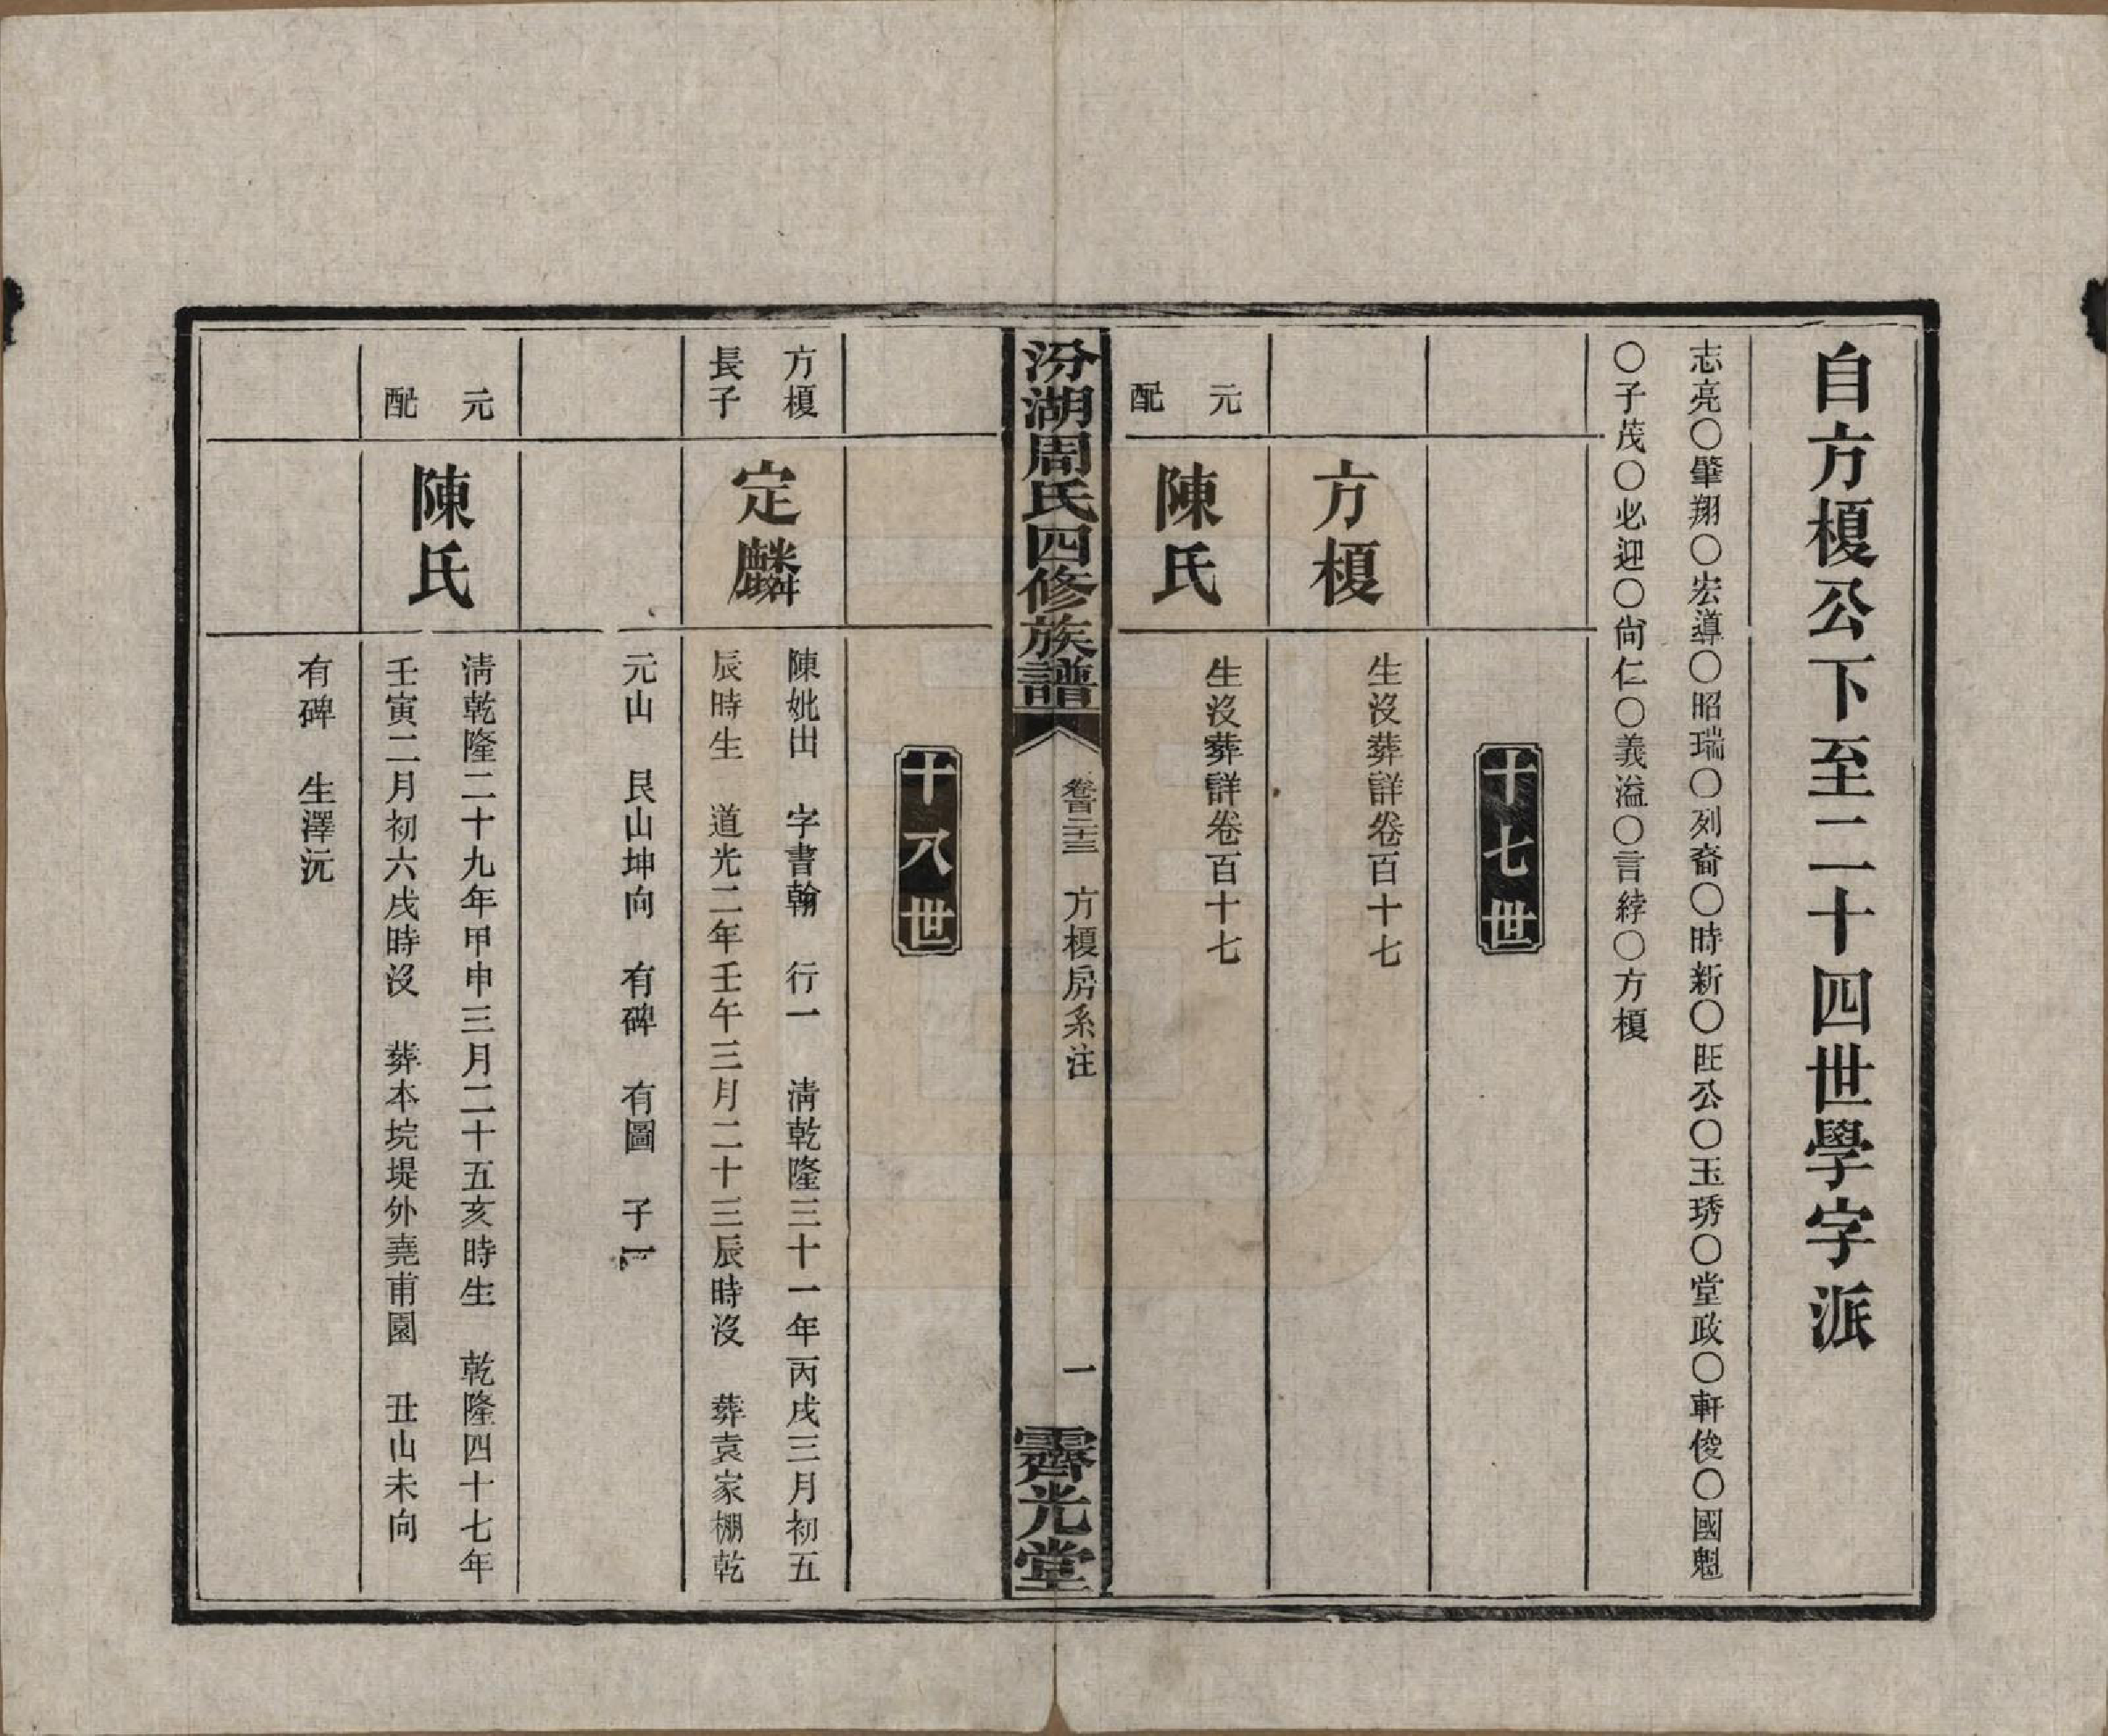 自方榎公下至二十四世學字派
志亮〇肇翔〇宏導〇昭瑞〇列裔〇時新〇旺公〇玉琇〇堂政〇軒俊〇國魁
〇子茂〇必迎〇尙仁〇義溢〇言綍〇方榎
十七世
方榎
生沒葬詳卷百十七
元配
陳氏
生沒葬詳卷百十七
汾湖周氏四修族譜
卷百二十三
方榎房系注
一
霽光堂
十八世
方榎長子
定麟
陳妣出 字書翰 行一 淸乾隆三十一年丙戌三月初五
辰時生 道光二年壬午三月二十三辰時沒 葬袁家棚乾
元山 艮山坤向 有碑 有圖 子一
元配
陳氏
淸乾隆二十九年甲申三月二十五亥時生 乾隆四十七年
壬寅二月初六戌時沒 葬本垸堤外堯甫園 丑山未向
有碑 生澤沅